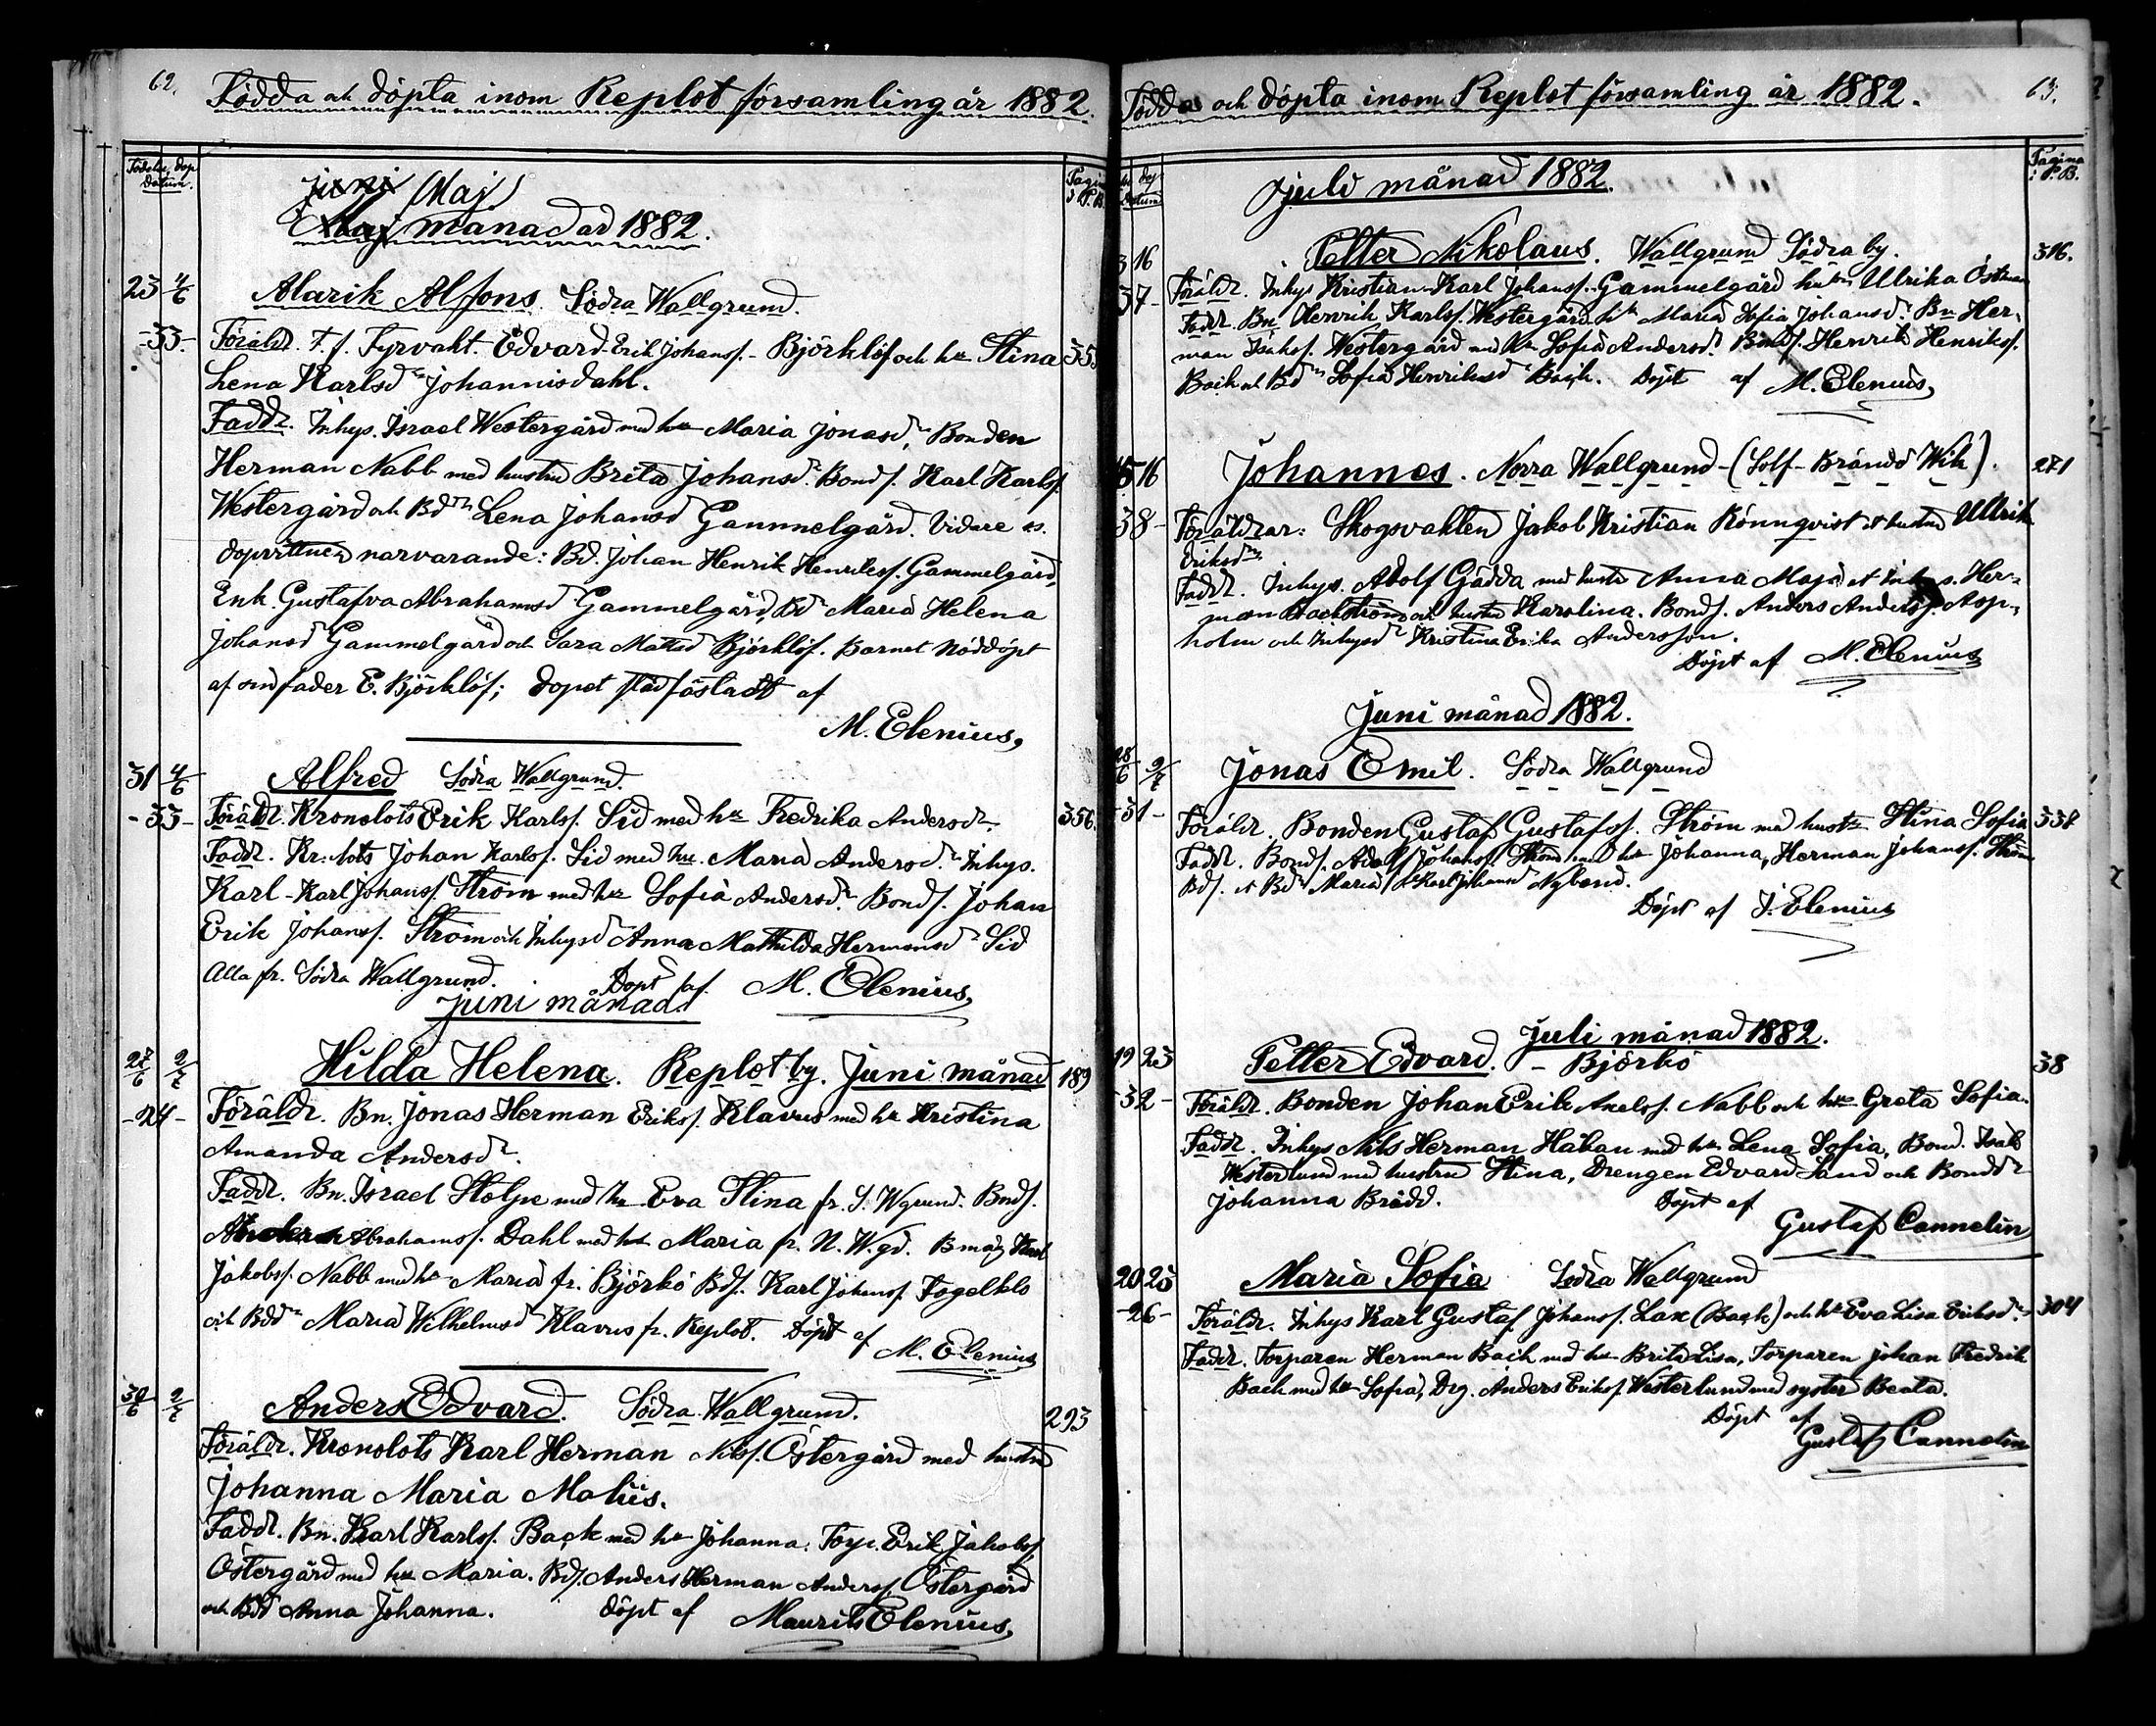 62.
Födda och döpta inom Replot församling år 1882.
Födelse dop
Datum.
Pagina
i P.B.
juni Maj
Maj månad år 1882.
23 4/6 Alarik Alfons. Södra Wallgrund.
-33- Föräldr. F. f. Fyrvakt. Edvard Erik Johanss. - Björklöf och h:u Stina 35
Lena Karlsd:r Johannisdahl.
Faddr. Inhys. Israel Westergård med h:u Maria Jonasd:r, Bonden
Herman Nabb med hustru Brita Johansd:r Bonds. Karl Karlss.
Westergård och Bd:r Lena Johansd Gammelgård. Vidare
dopvittnen narvarande: Bd. Johan Henrik Henrikss. Gammelgård,
Enk. Gustafva Abrahamsd Gammelgård, Bd:r Maria Helena
Johansd Gammelgård och Sara Mattsd Björklöf. Barnet Nöddöpt
af sin fader E. Björklöf; dopet stadfästadt af
M. Elenius.
31 4/6 Alfred Södra Wallgrund.
-33- Föräldr. Kronolots Erik Karlss. Sid med h:u Fredrika Andersd:r. 356.
Faddr. Kr. lots Johan Karlss. Sid med h:u Maria Andersd:r Inhys.
Karl-Karl Johanss Ström med h:u Sofia Andersd:r Bonds. Johan
Erik Johanss. Ström och Inhysd:r Anna Mathilda Hermansd:r Sid
Alla fr. Södra Wallgrund. Döpt af M. Elenius,
Juni månad.
27/6 2/7 Hilda Helena. Replot by. Juni månad 189
-24- Föräldr. Bn. Jonas Herman Erikss. Klavus med h:u Kristina
Amanda Andersd:r.
Faddr. Bn. Israel Stolpe med h:u Eva Stina fr. S. Wgrund. Bonds.
Abrahamss. Dahl med h:u Maria fr. N. W.gd. Bmåg Karl
Jakobss. Nabb med h:u Maria fr. Björkö Bds. Karl Johanss. Fogelklo
och Bdd:r Maria Wilhelmsd:r Klavus fr. Replot. Döpt af
M. Elenius
30/6 2/7 Anders Edvard. Södra Wallgrund. 293
Föräldr. Kronolots Karl Herman Nilss. Östergård med hustru
Johanna Maria Matsis.
Faddr. Bn. Karl Karlss. Back med h:u Johanna. Torp. Erik Jakobss.
Östergård med h:u Maria. Bds. Anders Herman Anderss. Östergård
och Bdd Anna Johanna. Döpt af Maurits Elenius,
Födda och döpta inom Replot församling år 1882.
63.
dop
Datum
Pagina
i P.B.
Juli månad 1882.
3 16 Petter Nikolaus. Wallgrund Södra by. 316.
37- Föräldr. Inhys Kristian-Karl Johanss. Gammelgård hustru Ulrika Östman
Faddr. Bn Henrik Karlss. Westergård h:u Maria Sofia Johansd:r Bn Her-
man Isakss. Westergård med h:u Sofia Andersd:r Bonds. Henrik Henrikss.
Back och Bd:r Sofia Henriksd Back. Döpt af M. Elenius,
15 16 Johannes. Norra Wallgrund - (Solf - Brändö Wik). 271
38- Föräldrar: Skogsvakten Jakob Kristian Rönnqvist o hustru Ullrik
Eriksd:r
Faddr. Inhys. Adolf Gädda med hustr Anna Maja o Inhys. Her-
man Backström och hustru Karolina. Bonds. Anders Anderss. Asp-
holm och Inhysd:r Kristina Erika Andersson.
Döpt af M. Elenius
Juni månad 1882.
28/6 2/7 Jonas Emil. Södra Wallgrund
-31- Föräldr. Bonden Gustaf Gustafss. Ström med hustr Stina Sofia 338
Faddr. Bonds. Adolf Johanss. Ström med h:u Johanna, Herman Johanss. Ström
Bds. o Bd:r Maria Karl Johansd Nybond.
Döpt af J. Elenius
Juli månad 1882.
19 23 Petter Edvard. - Björkö 38
-32- Föräldr. Bonden Johan Erik Axelss. Nabb och h:u Greta Sofia.
Faddr. Inhys Nils Herman Håkan med h:u Lena Sofia, Bond. Isak
Westerlund med hustru Stina, Drengen Edvard Sand och Bondd:r
Johanna Brädd. Döpt af
Gustaf Cannelin
20 23 Maria Sofia Södra Wallgrund
-26- Föräldr. Inhys Karl Gustaf Johanss. Lax (Back) och h:u Eva Lisa Eriksd:r 304
Faddr. Torparen Herman Back med h:u Brita Lisa, Torparen Johan Fredrik
Back med h:u Sofia, Drg. Anders Erikss. Westerlund med syster Beata.
Döpt af
Gustaf Cannelin